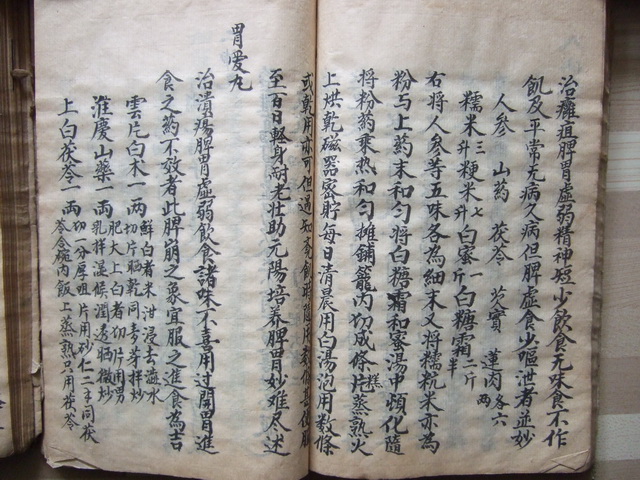 治癰疽脾胃虛弱精神短少飲食无味食不作
飢及平常无病久病但脾虛食少嘔泄者並妙
人参 山药 茯苓 芡實 蓮肉各六兩
糯米三升粳米七升白蜜一斤白糖霜二斤半
右将人参等五味各為細末又将糯秔米亦為
粉与上药末和匀将白糖霜和蜜湯中頓化隨
将粉药乗热和匀攤鋪籠内切成條片糕蒸熟火
上烘乾磁器密貯每日清晨用白湯泡用数條
或乾用亦可但遇知覓飢時隨用数條甚便服
至一百日輕身耐老壮助元陽培养脾胃妙难尽述
胃爱丸
治潰瘍脾胃虛弱飲食諸味不喜用过開胃進
食之药不效者此脾崩之象宜服之進食為吉
雲片白术一两鮮白者米泔浸去澁水切片晒乾同麦芽拌炒
淮慶山藥一两肥大上白者切片用男乳拌湿候潤透晒微炒
上白茯苓一两切一分厚咀片用砂仁二羊同茯苓合碗内飯上蒸熟只用茯苓